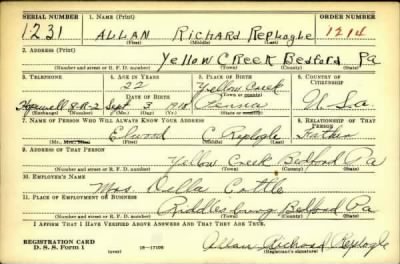 SERIAL NUMBER 1. NAME (Print) ORDER NUMBER
1231 ALLAN Richard Replogle 1214
(First) (Middle) (Last)
2. ADDRESS (Print)
Yellow Creek Bedford Pa
(Number and street or R. F. D. number) (Town) (County) (State)
3. TELEPHONE 4. AGE IN YEARS 5. PLACE OF BIRTH 6. COUNTRY OF CITIZENSHIP
22 Yellow Creek
DATE OF BIRTH (Town or county)
Hopewell 8-R-2 Sept 3 1918 Penna U.S.a
(Exchange) (Number) (Mo.) (Day) (Yr.) (State or country)
7. NAME OF PERSON WHO WILL ALWAYS KNOW YOUR ADDRESS 8. RELATIONSHIP OF THAT PERSON
Elwood C Replogle Father
(Mr., Mrs., Miss) (First) (Middle) (Last)
9. ADDRESS OF THAT PERSON
Yellow Creek Bedford Pa
(Number and street or R. F. D. number) (Town) (County) (State)
10. EMPLOYER'S NAME
Mrs. Della
11. PLACE OF EMPLOYMENT OR BUSINESS
Riddlesburg Bedford Pa
(Number and street or R. F. D. number) (Town) (County) (State)
I AFFIRM THAT I HAVE VERIFIED ABOVE ANSWERS AND THAT THEY ARE TRUE.
REGISTRATION CARD
D. S. S. Form 1 16—17105 Allan Richard Replogle
(Registrant's signature)